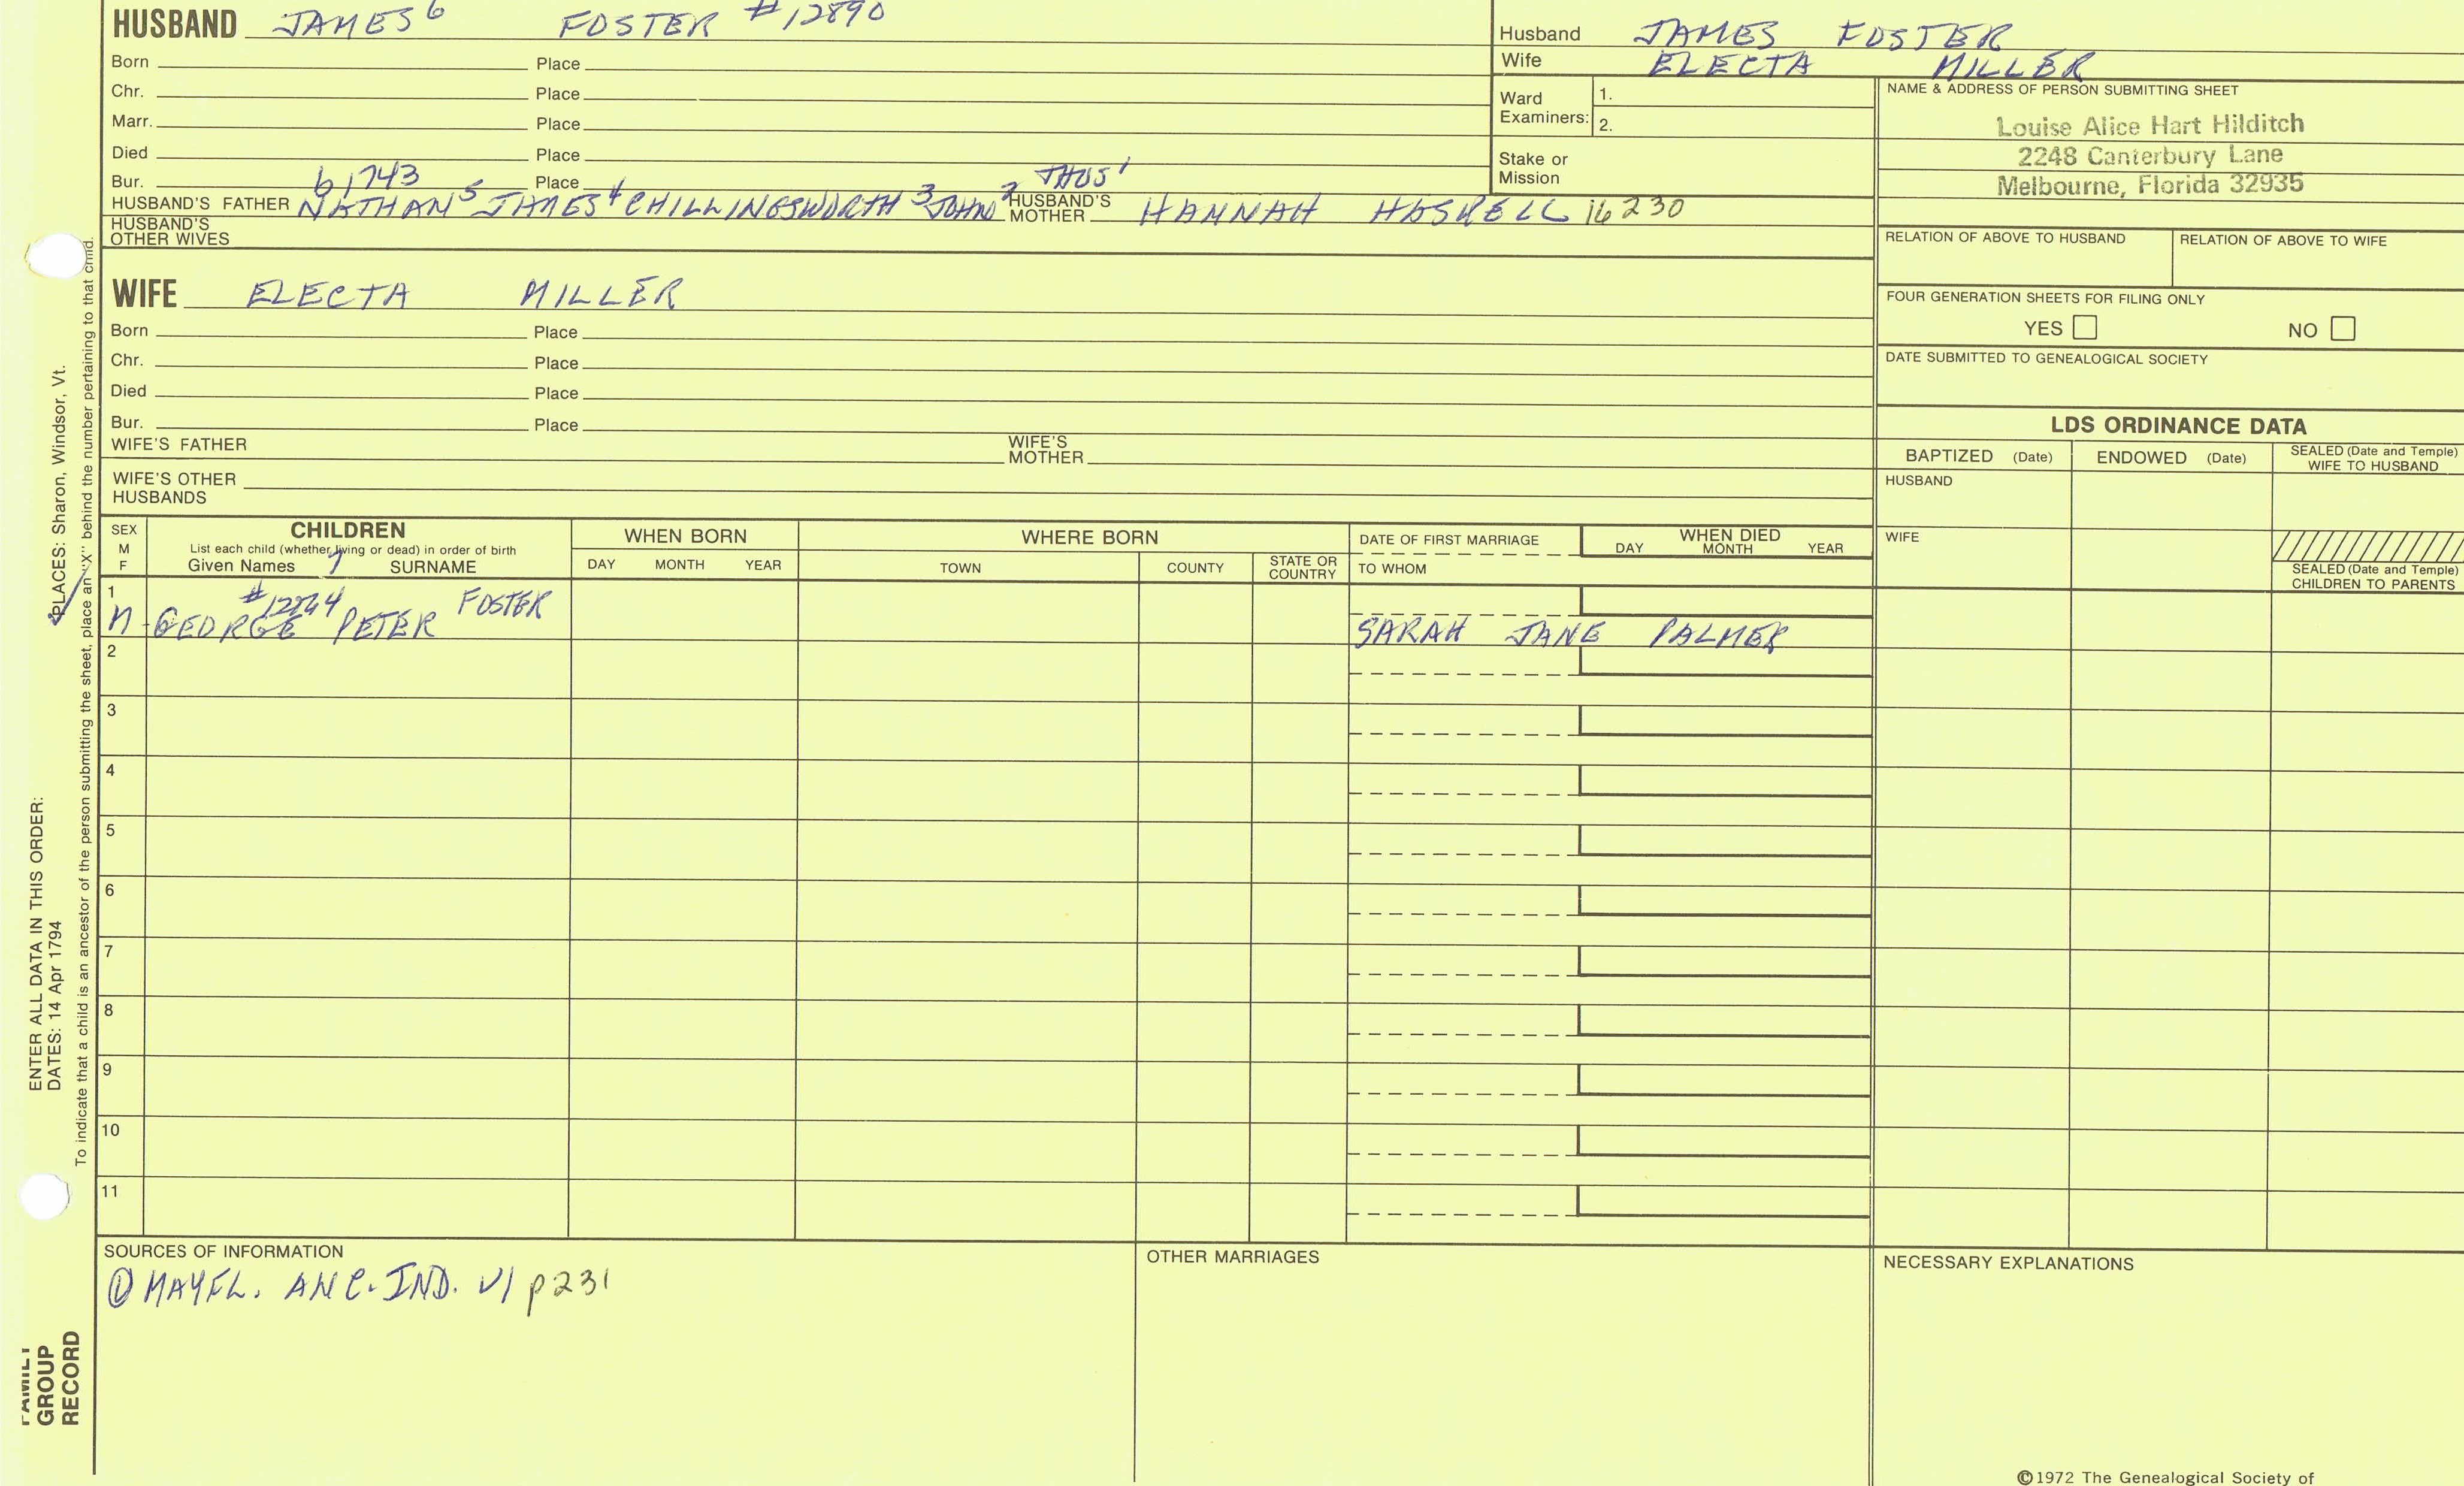 HUSBAND JAMES⁶ FOSTER #12890
Born Place
Chr. Place
Marr. Place
Died Place
Bur. Place
b 1743 THOS¹
HUSBAND'S FATHER NATHAN⁵ JAMES⁴ CHILLINGSWORTH³ JOHN² HUSBAND'S MOTHER HANNAH HASKELL 16230
HUSBAND'S OTHER WIVES
WIFE ELECTA MILLER
Born Place
Chr. Place
Died Place
Bur. Place
WIFE'S FATHER WIFE'S MOTHER
WIFE'S OTHER HUSBANDS
Husband JAMES FOSTER
Wife ELECTA MILLER
Ward Examiners: 1.
2.
Stake or Mission
NAME & ADDRESS OF PERSON SUBMITTING SHEET
Louise Alice Hart Hilditch
2248 Canterbury Lane
Melbourne, Florida 32935
RELATION OF ABOVE TO HUSBAND RELATION OF ABOVE TO WIFE
FOUR GENERATION SHEETS FOR FILING ONLY
YES NO
DATE SUBMITTED TO GENEALOGICAL SOCIETY
LDS ORDINANCE DATA
BAPTIZED (Date) ENDOWED (Date) SEALED (Date and Temple) WIFE TO HUSBAND
HUSBAND
WIFE
SEALED (Date and Temple) CHILDREN TO PARENTS
SEX M F
CHILDREN
List each child (whether living or dead) in order of birth
Given Names 7 SURNAME
WHEN BORN
DAY MONTH YEAR
WHERE BORN
TOWN COUNTY STATE OR COUNTRY
DATE OF FIRST MARRIAGE
TO WHOM
WHEN DIED
DAY MONTH YEAR
1
M GEORGE PETER FOSTER SARAH JANE PALMER
2
3
4
5
6
7
8
9
10
11
SOURCES OF INFORMATION
① MAYFL. ANC. IND. V1 p231
OTHER MARRIAGES
NECESSARY EXPLANATIONS
©1972 The Genealogical Society of
ENTER ALL DATA IN THIS ORDER:
DATES: 14 Apr 1794
PLACES: Sharon, Windsor, Vt.
To indicate that a child is an ancestor of the person submitting the sheet, place an "X" behind the number pertaining to that child.
FAMILY
GROUP
RECORD